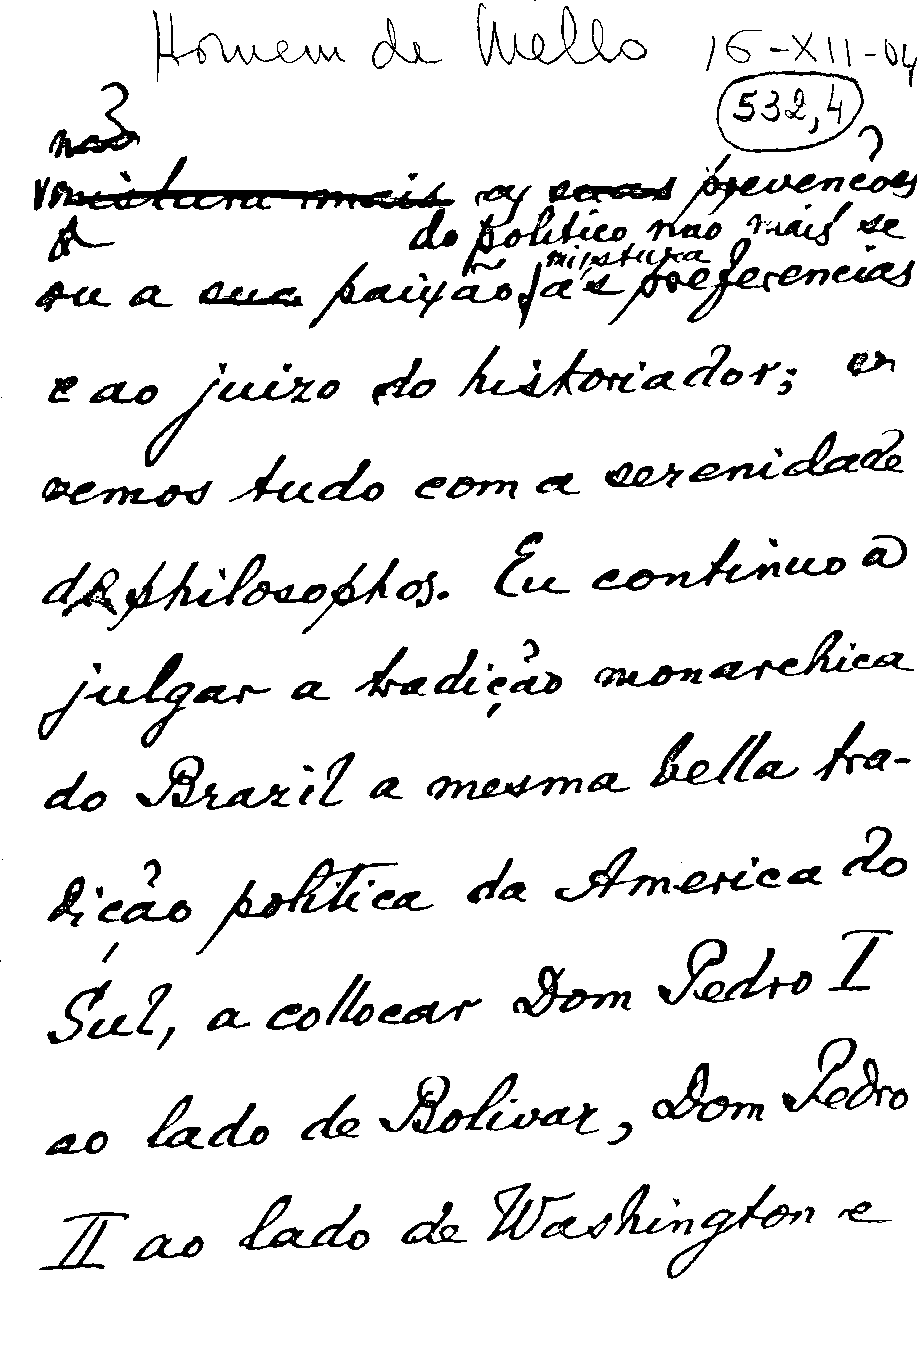 Homem de Mello 16-XII-04
532,4
não
mistura mais as suas prevenções
do politico não mais se
mistura
ou a sua paixão, ás preferencias
e ao juizo do historiador; en
vemos tudo com a serenidade
de philosophos. Eu continuo a
julgar a tradição monarchica
do Brazil a mesma bella tra-
dição politica da America do
Sul, a collocar Dom Pedro I
ao lado de Bolivar, Dom Pedro
II ao lado de Washington e